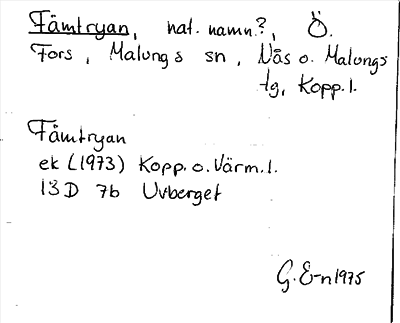 Fämtryan, nat. namn?, Ö.
Fors, Malungs sn, Nås o. Malungs
tg, Kopp. l.
Fämtryan
ek (1973) Kopp. o. Värm. l.
13D 7b Uvberget
G. E-n 1975